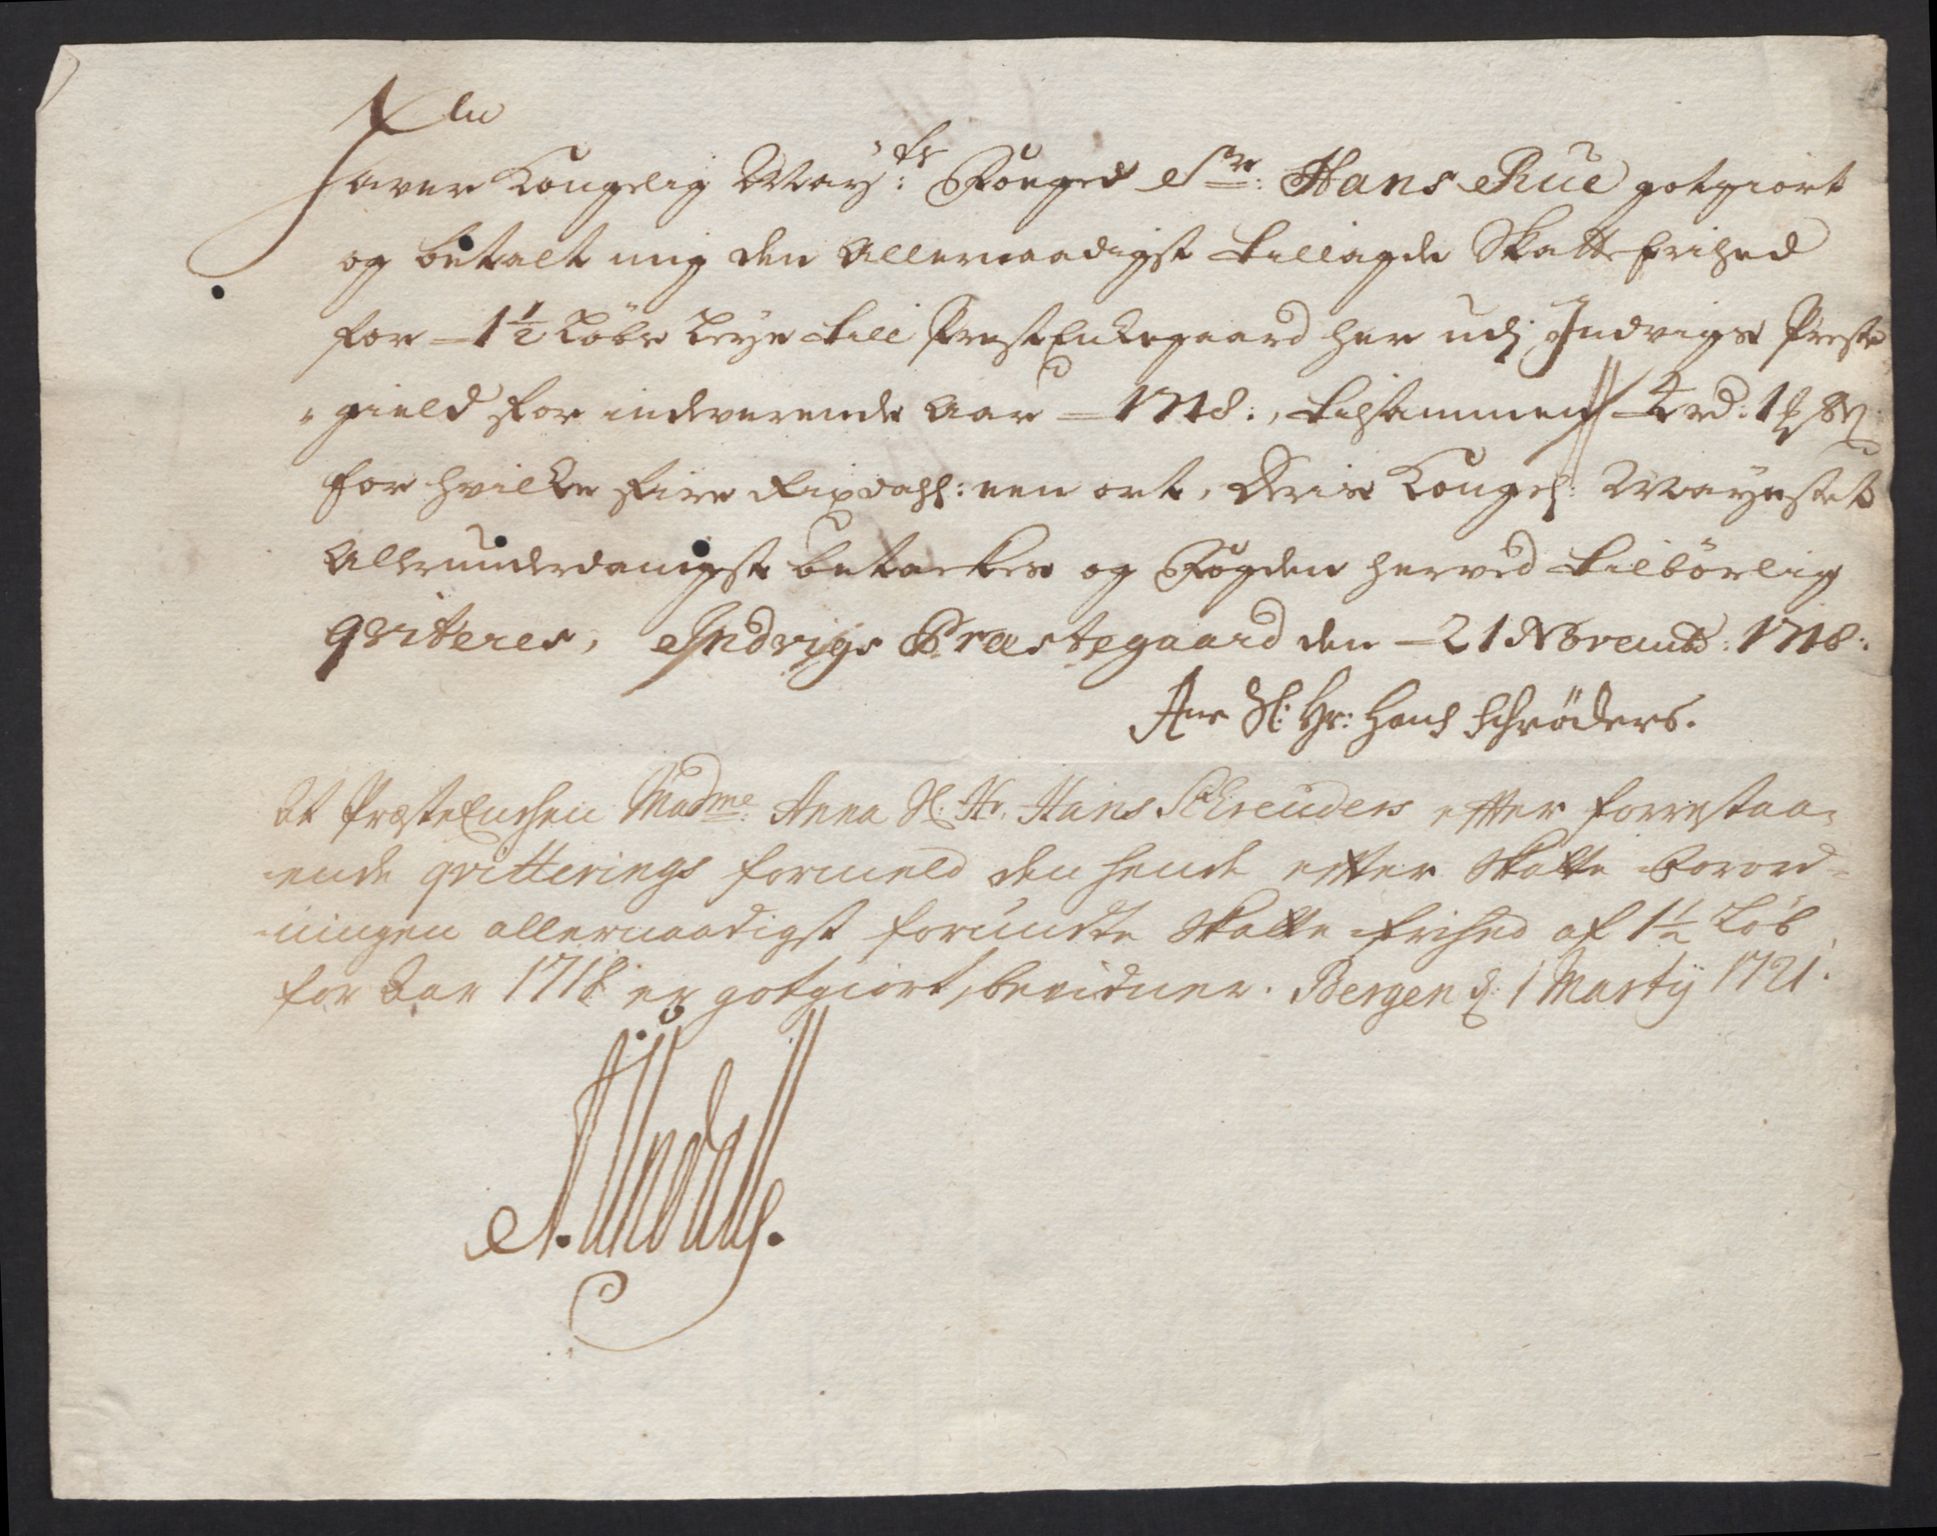 Haver Kongelig May:ts Fouget Sr: Hans Rue gotgiort
og betalt mig den Allernaadigst tillagde Skatte frihed
for – 1½ Løbs Leye till PrestEnkegaard her udj Indvigs Preste
gield for indeverende Aar – 1718:, tilsammen 4 rd: 1
for hvilke fire Rixdahl: een ort, Deris Kongel: Mayestet
Allerunderdanigst betackes og Fogden herved tilbörlig
qviteres, Indvigs Præstegaard den – 21 Novemb: 1718:
Ane Sl: Hr: Hans Schröders.
At PræsteEnchen Madme: Anna Sl: Hr: Hans Schreuders efter forrestaa-
ende qvitterings formeld den hende efter Skatte Forord-
ningen allernaadigst forundte Skatte frihed af 1½ Løb
for Aar 1718 er gotgiort, bevidner. Bergen d: 1 Martij 1721.